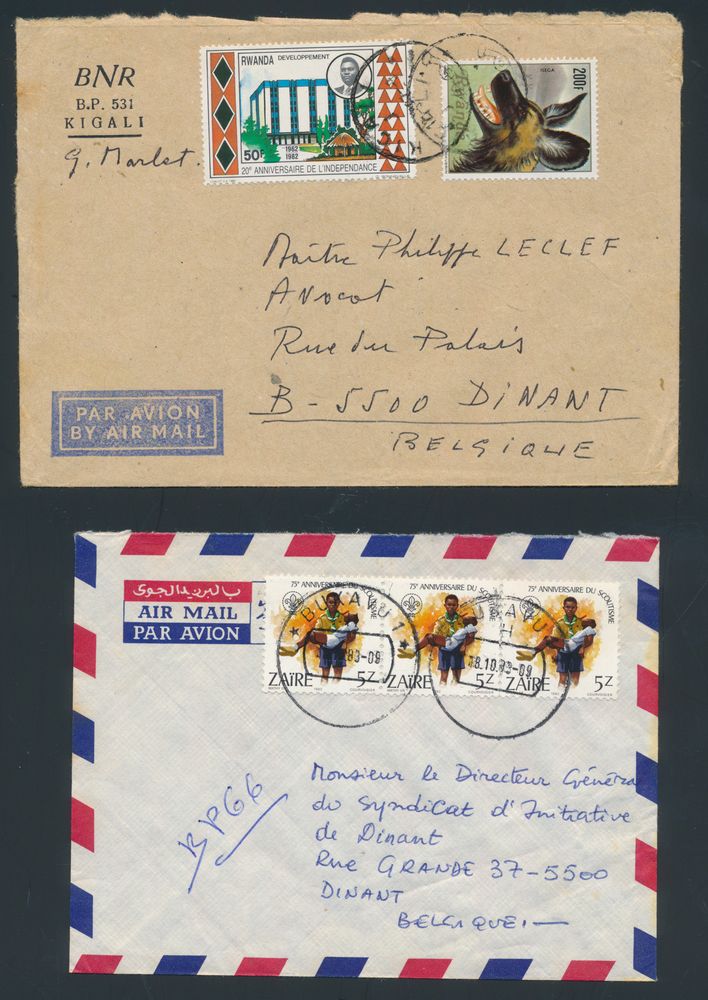 BNR
B.P. 531
KIGALI
G. Marlet.
RWANDA DEVELOPPEMENT
1962
1982
50F
20e ANNIVERSAIRE DE L'INDEPENDANCE
200F
Rwanda
Maître Philippe LECLEF
Avocat
Rue du Palais
B-5500 DINANT
BELGIQUE
PAR AVION
BY AIR MAIL
بالبريد الجوي
AIR MAIL
PAR AVION
75e ANNIVERSAIRE DU SCOUTISME
75e ANNIVERSAIRE DU SCOUTISME
75e ANNIVERSAIRE DU SCOUTISME
BUKAVU 1
BUKAVU 1
H
83-09
18.10.83-09
ZAÏRE 5Z
ZAÏRE 5Z
ZAÏRE 5Z
1982 COURVOISIER
BP66
Monsieur le Directeur Général
du Syndicat d'Initiative
de Dinant
Rue GRANDE 37-5500
DINANT
BELGIQUE.—